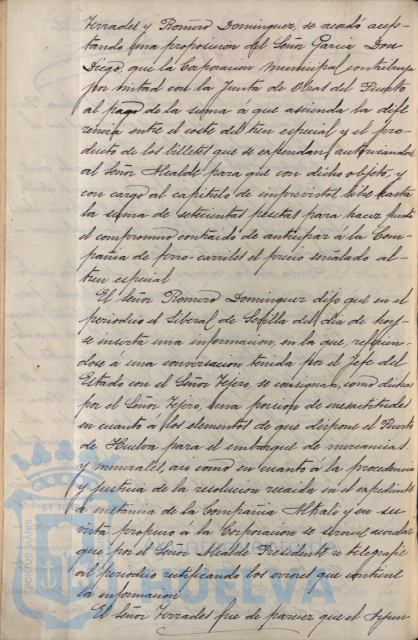 Terrades y Romero Dominguez, se acordó acep-
tando una proposicion del Señor Garcia Don
Diego, que la Corporacion Municipal contribuya
por mitad con la Junta de Obras del Puerto
al pago de la suma á que ascienda la dife
rencia entre el coste del tren especial y el pro-
ducto de los billetes que se expendan, autorizandose
al Señor Alcalde para que con dicho objeto, y
con cargo al capitulo de imprevistos, libre hasta
la suma de setecientas pesetas para hacer frente
el compromiso contraido de anticipar á la Com-
pañia de ferro-carriles el precio señalado al
tren especial
El Señor Romero Dominguez dijo que en el
periodico el Liberal de Sevilla del dia de hoy
se inserta una informacion, en la que, refirien-
dose á una conversacion tenida por el Jefe del
Estado con el Señor Tejero, se consignan, como dichas
por el Señor Tejero, una porcion de inexactitudes
en cuanto á los elementos de que dispone el Puerto
de Huelva para el embarque de mercancias
y minerales, asi como en cuanto á la procedencia
y justicia de la resolucion recaida en el expediente
á instancia de la Compañia Alkali y en su
vista propuso á la Corporacion se sirviese acordar
que por el Señor Alcalde Presidente se telegrafie
al periodico rectificando los errores que contiene
la informacion
El Señor Terrades fue de parecer que el
HUELVA